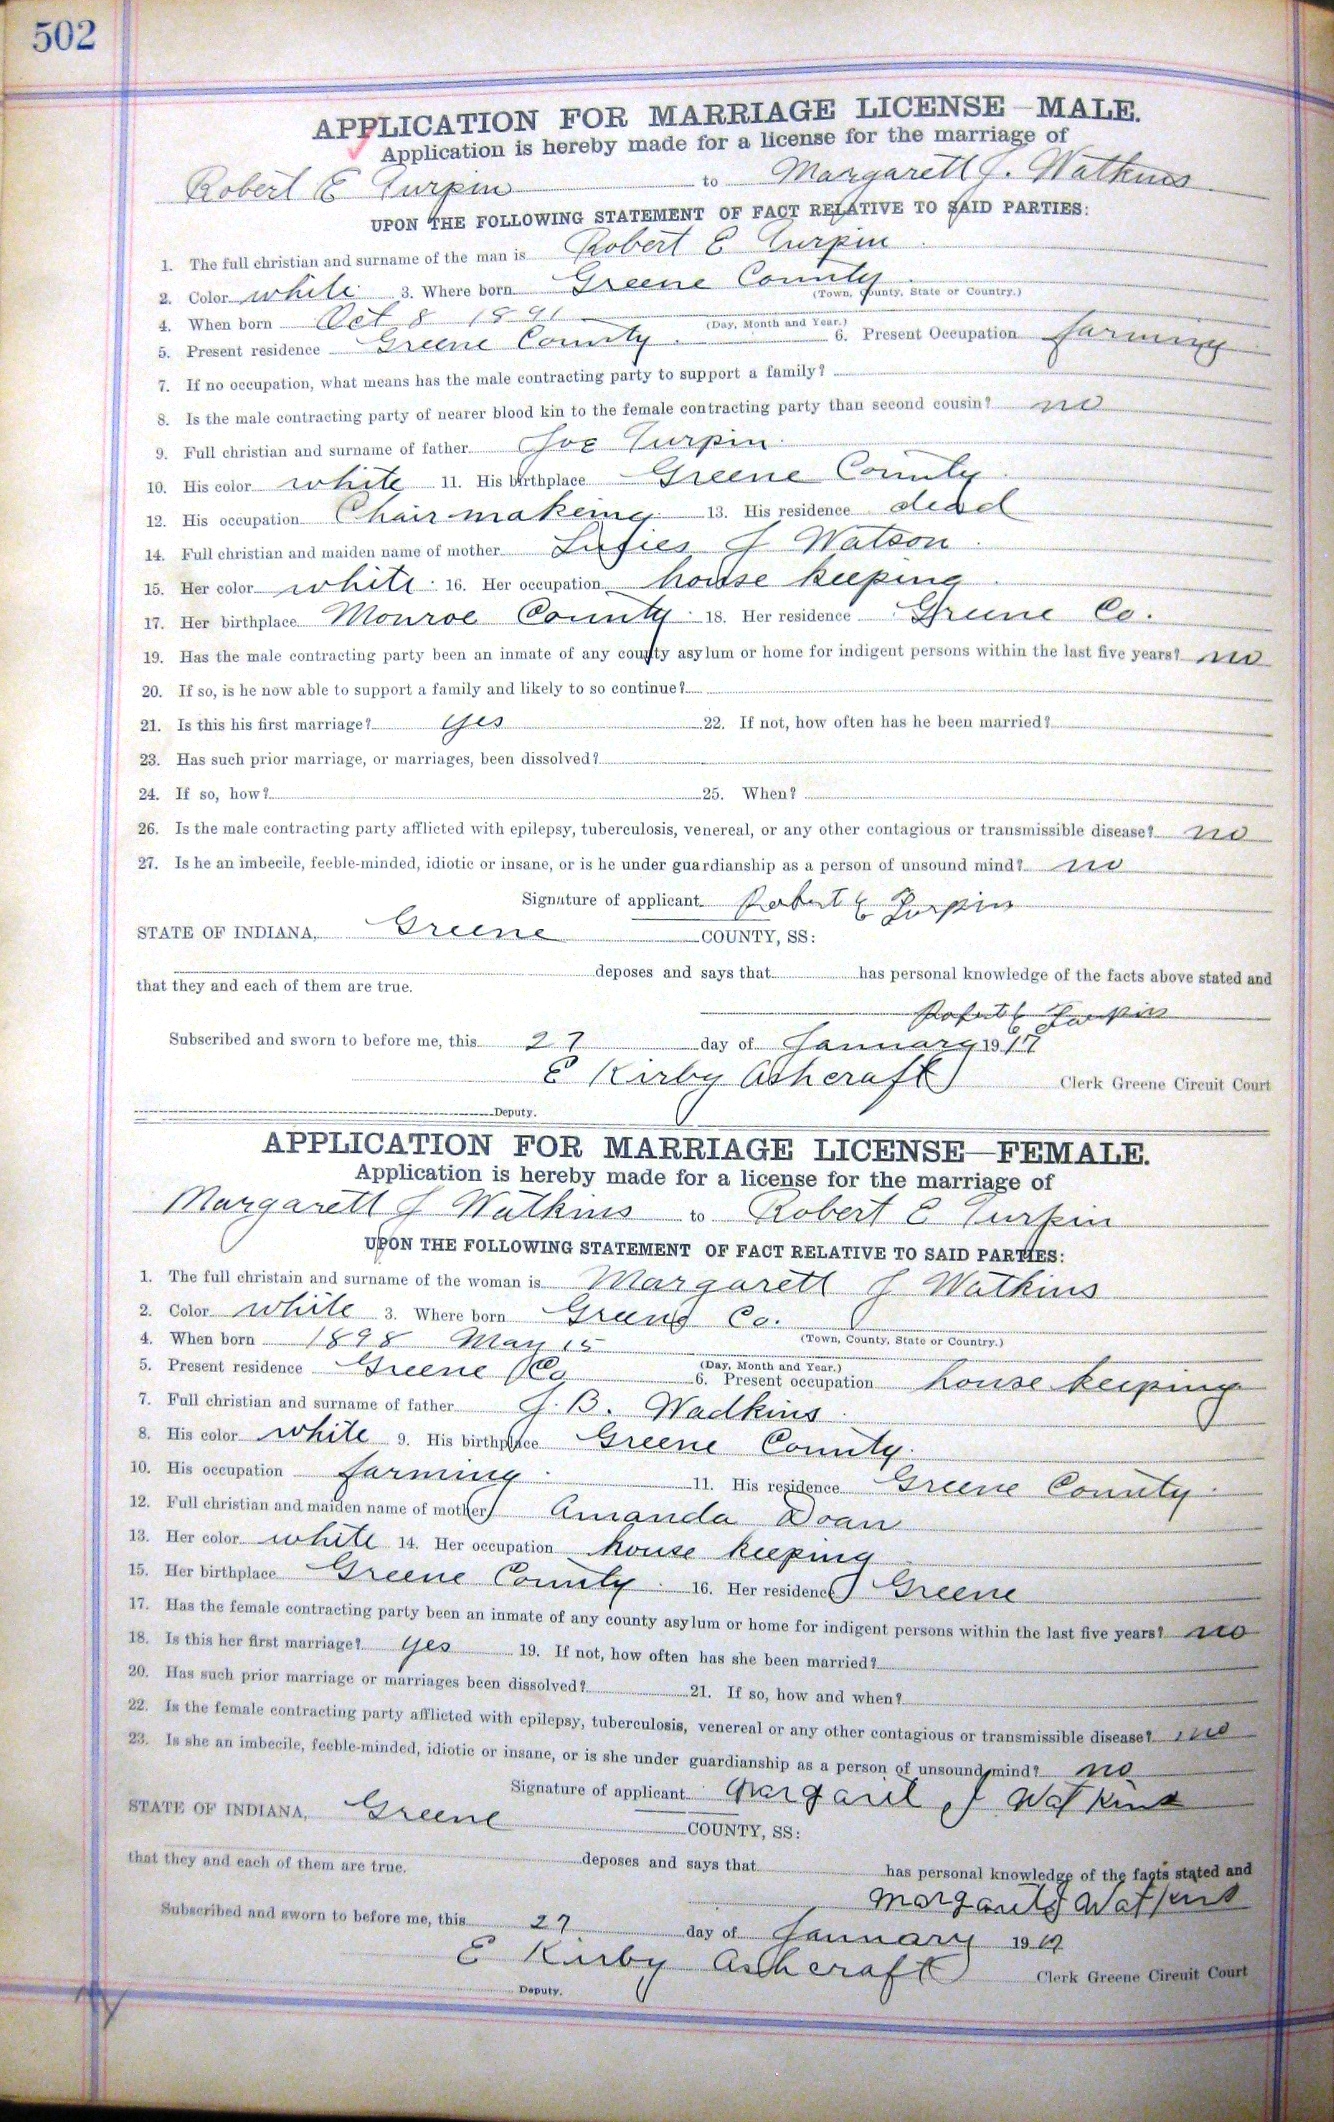 502
APPLICATION FOR MARRIAGE LICENSE—MALE.
Application is hereby made for a license for the marriage of
Robert E Turpin to Margarett J. Watkins
UPON THE FOLLOWING STATEMENT OF FACT RELATIVE TO SAID PARTIES:
1. The full christian and surname of the man is Robert E Turpin
2. Color white 3. Where born Greene County
(Town, County, State or Country.)
4. When born Oct 8 1891
(Day, Month and Year.)
5. Present residence Greene County 6. Present Occupation farming
7. If no occupation, what means has the male contracting party to support a family?
8. Is the male contracting party of nearer blood kin to the female contracting party than second cousin? no
9. Full christian and surname of father Joe Turpin
10. His color white 11. His birthplace Greene County
12. His occupation Chair makeing 13. His residence dead
14. Full christian and maiden name of mother J Watson
15. Her color white 16. Her occupation house keeping
17. Her birthplace Monroe County 18. Her residence Greene Co.
19. Has the male contracting party been an inmate of any county asylum or home for indigent persons within the last five years? no
20. If so, is he now able to support a family and likely to so continue?
21. Is this his first marriage? yes 22. If not, how often has he been married?
23. Has such prior marriage, or marriages, been dissolved?
24. If so, how? 25. When?
26. Is the male contracting party afflicted with epilepsy, tuberculosis, venereal, or any other contagious or transmissible disease? no
27. Is he an imbecile, feeble-minded, idiotic or insane, or is he under guardianship as a person of unsound mind? no
Signature of applicant Robert E Turpin
STATE OF INDIANA, Greene COUNTY, SS:
deposes and says that has personal knowledge of the facts above stated and
that they and each of them are true.
Robert E Turpin
Subscribed and sworn to before me, this 27 day of January 1917
E Kirby Ashcraft Clerk Greene Circuit Court
Deputy.
APPLICATION FOR MARRIAGE LICENSE—FEMALE.
Application is hereby made for a license for the marriage of
Margarett J Watkins to Robert E Turpin
UPON THE FOLLOWING STATEMENT OF FACT RELATIVE TO SAID PARTIES:
1. The full christain and surname of the woman is Margarett J Watkins
2. Color white 3. Where born Greene Co.
(Town, County, State or Country.)
4. When born 1898 May 15
(Day, Month and Year.)
5. Present residence Greene Co 6. Present occupation house keeping
7. Full christian and surname of father J. B. Wadkins
8. His color white 9. His birthplace Greene County
10. His occupation farming 11. His residence Greene County
12. Full christian and maiden name of mother Amanda Doan
13. Her color white 14. Her occupation house keeping
15. Her birthplace Greene County 16. Her residence Greene
17. Has the female contracting party been an inmate of any county asylum or home for indigent persons within the last five years? no
18. Is this her first marriage? yes 19. If not, how often has she been married?
20. Has such prior marriage or marriages been dissolved? 21. If so, how and when?
22. Is the female contracting party afflicted with epilepsy, tuberculosis, venereal or any other contagious or transmissible disease? no
23. Is she an imbecile, feeble-minded, idiotic or insane, or is she under guardianship as a person of unsound mind? no
Signature of applicant J Watkins
STATE OF INDIANA, Greene COUNTY, SS:
deposes and says that has personal knowledge of the facts stated and
that they and each of them are true.
J Watkins
Subscribed and sworn to before me, this 27 day of January 1917
E Kirby Ashcraft Clerk Greene Circuit Court
Deputy.